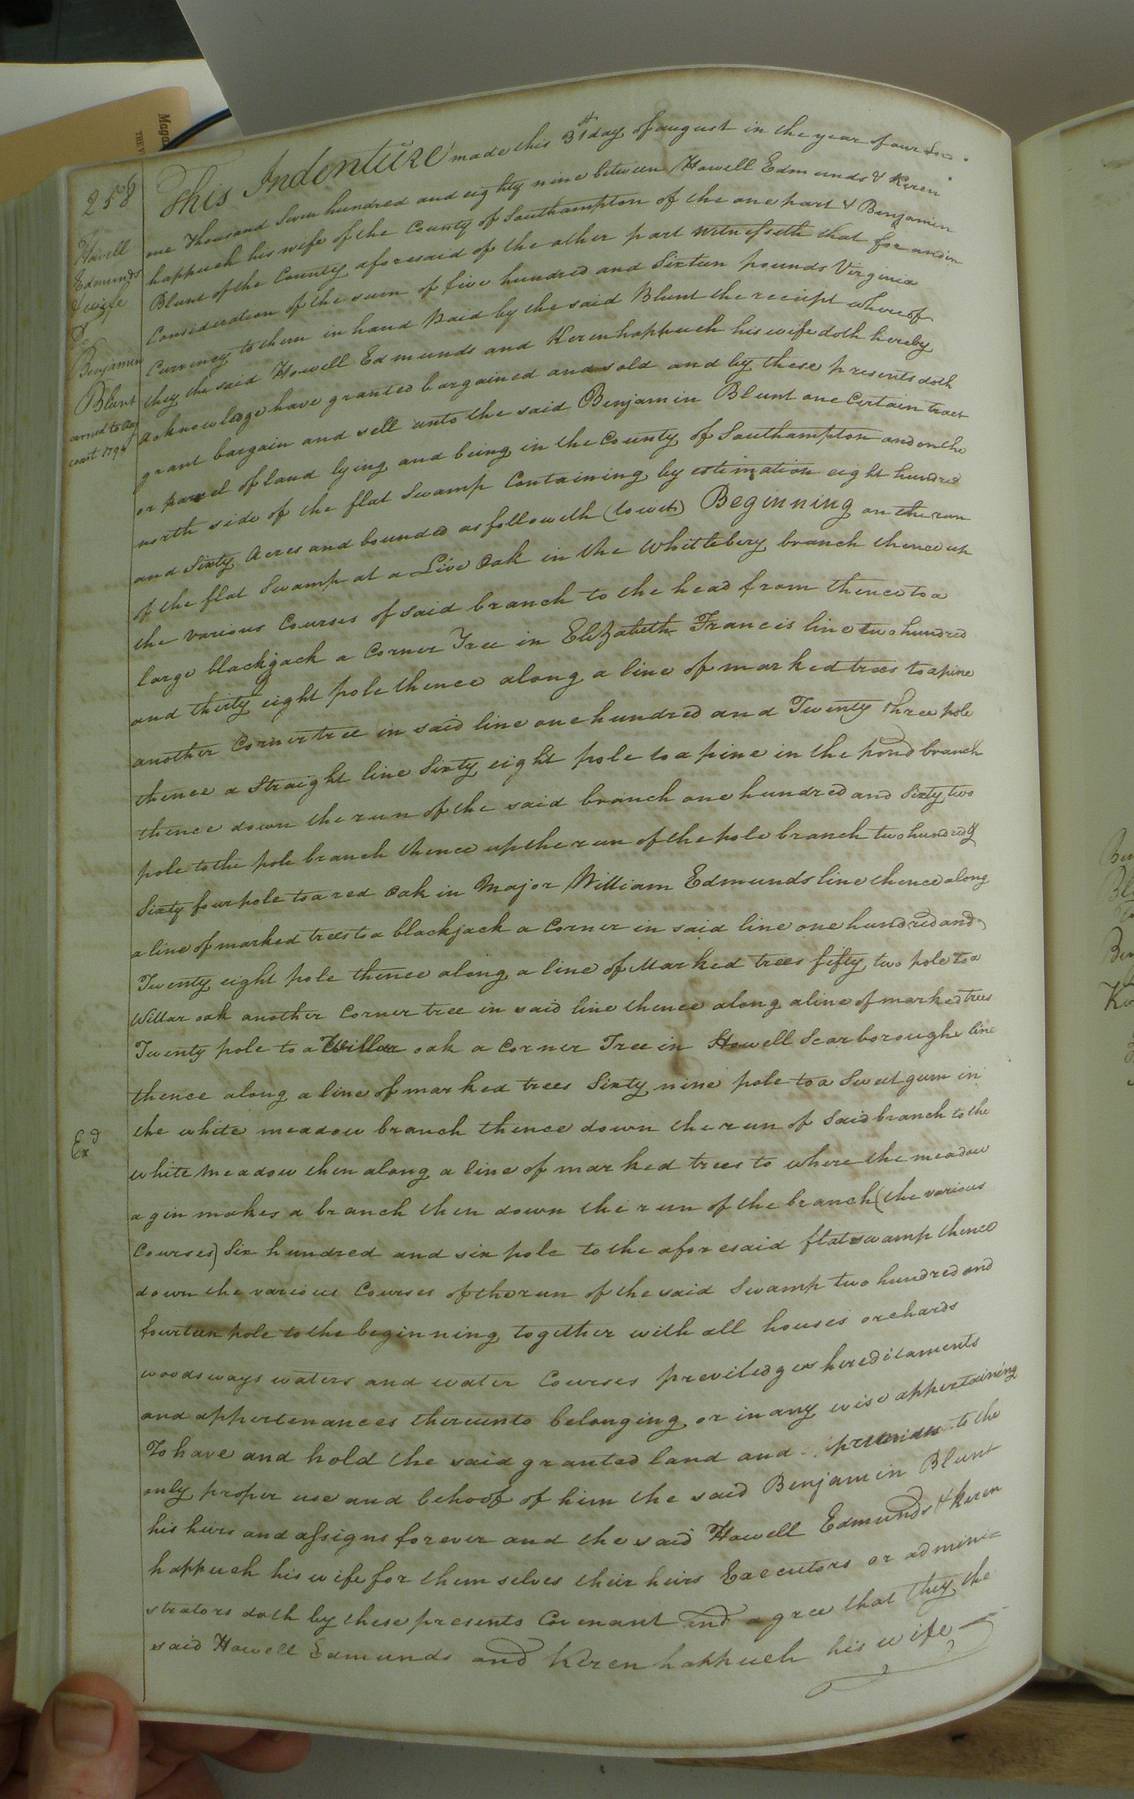 258
Howell
Edmunds
& wife
To
Benjamin
Blunt
Court 1794
Exd
This Indenture made this 31st day of august in the year of our
one Thousand Seven hundred and eighty nine between Howell Edmunds & Keren
happuch his wife of the County of Southampton of the one part & Benjamin
Blunt of the County aforesaid of the other part Witnesseth that for and in
Consideration of the sum of five hundred and Sixteen pounds Virginia
Currency to them in hand Paid by the said Blunt the receipt whereof
they the said Howell Edmunds and Kerenhappuch his wife doth hereby
acknowledge have granted bargained and sold and by these presents doth
grant bargain and sell unto the said Benjamin Blunt one Certain tract
or parcel of land lying and being in the County of Southampton and on the
north side of the flat Swamp Containing by estimation eight hundred
and Sixty Acres and bounded as followeth (towit) Beginning on the run
of the flat Swamp at a Live Oak in the Whittlebery branch thence up
the various Courses of said branch to the head from thence to a
large blackjack a Corner Tree in Elizabeth Francis line two hundred
and thirty eight pole thence along a line of marked trees to a pine
another Corner tree in said line one hundred and Twenty three pole
thence a Straight line Sixty eight pole to a pine in the pond branch
thence down the run of the said branch one hundred and Sixty two
pole to the pole branch thence up the run of the pole branch two hundred &
Sixty four pole to a red Oak in Major William Edmunds line thence along
a line of marked trees to a blackjack a Corner in said line one hundred and
Twenty eight pole thence along a line of Marked trees fifty two pole to a
Willar oak another Corner tree in said line thence along a line of marked trees
Twenty pole to a Willar oak a Corner Tree in Howell Scarboroughs line
thence along a line of marked trees Sixty nine pole to a Sweet gum in
the white meadow branch thence down the run of Said branch to the
white meadow then along a line of marked trees to where the meadow
agin makes a branch then down the run of the branch (the various
Courses) Six hundred and six pole to the aforesaid flat swamp thence
down the various Courses of the run of the said Swamp two hundred and
fourteen pole to the beginning together with all houses orchards
woods ways waters and water Courses previledges hereditaments
and appertenances thereunto belonging or in any wise appertaining
To have and hold the said granted land and premises to the
only proper use and behoof of him the said Benjamin Blunt
his heirs and assigns forever and the said Howell Edmunds & Keren
happuch his wife for them selves their heirs Executors or admini=
strators doth by these presents Covenant and agree that they the
said Howell Edmunds and Kerenhappuch his wife